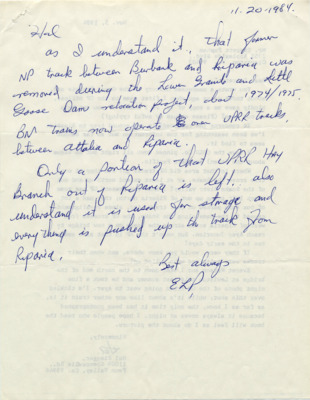 11-20-1984.
Hal
as I understand it, that former
NP track between Burbank and Riparia was
removed during the Lower Granite and Little
Goose Dam relocation project, about 1974/1975.
BN trains now operate over UPRR tracks,
between Attalia and Riparia.
Only a portion of that UPRR Hay
Branch out of Riparia is left. also
understand it is used for storage and
everything is pushed up th track from
Riparia.
Best always
ELP